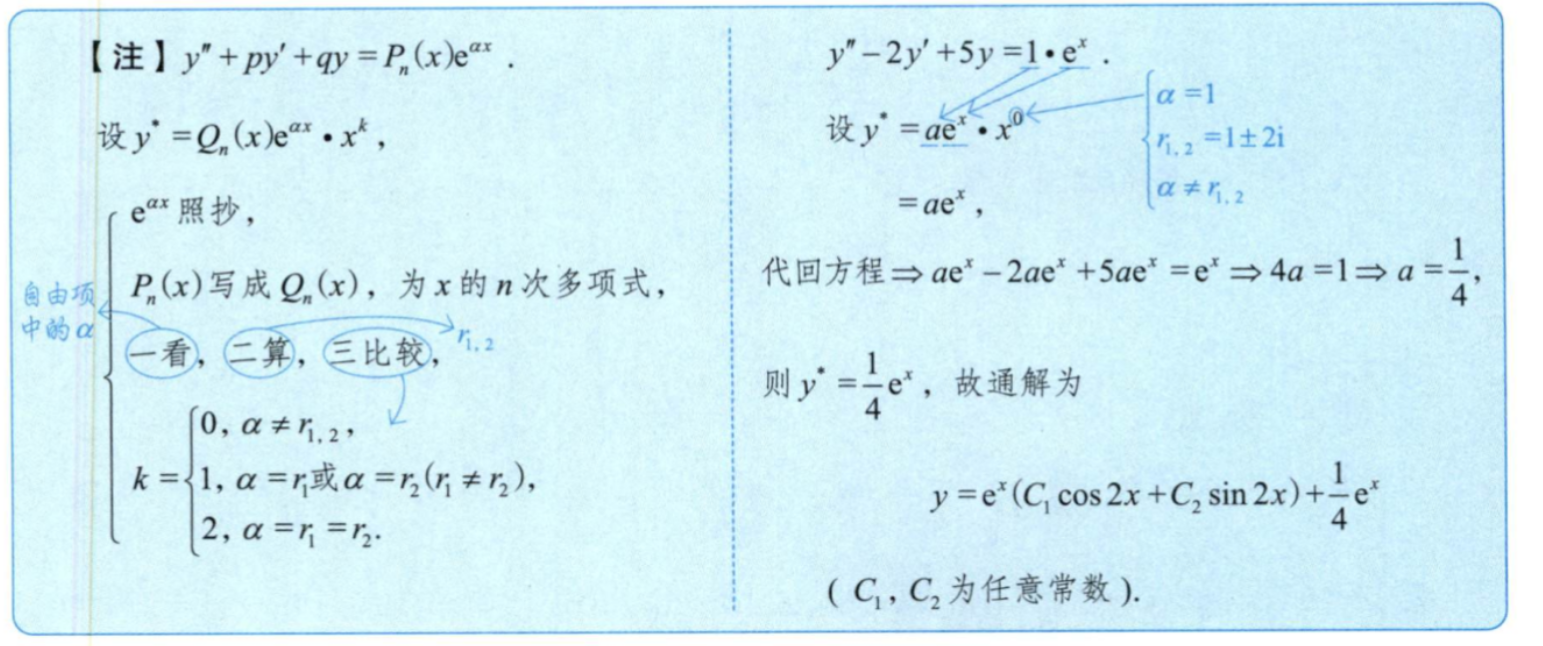 【注】y″+py′+qy=Pₙ(x)e^{αx}.
设 y*=Qₙ(x)e^{αx}·x^k,
e^{αx}照抄,
Pₙ(x)写成Qₙ(x),为x的n次多项式,
自由项
中的α
一看,二算,三比较,
r₁,₂
k={0, α≠r₁,₂,
1, α=r₁或α=r₂(r₁≠r₂),
2, α=r₁=r₂.
y″-2y′+5y=1·e^x.
设 y*=ae^x·x^0
α=1
r₁,₂=1±2i
α≠r₁,₂
=ae^x,
代回方程⇒ae^x-2ae^x+5ae^x=e^x⇒4a=1⇒a=1/4,
则 y*=1/4 e^x,故通解为
y=e^x(C₁cos2x+C₂sin2x)+1/4 e^x
(C₁,C₂为任意常数).